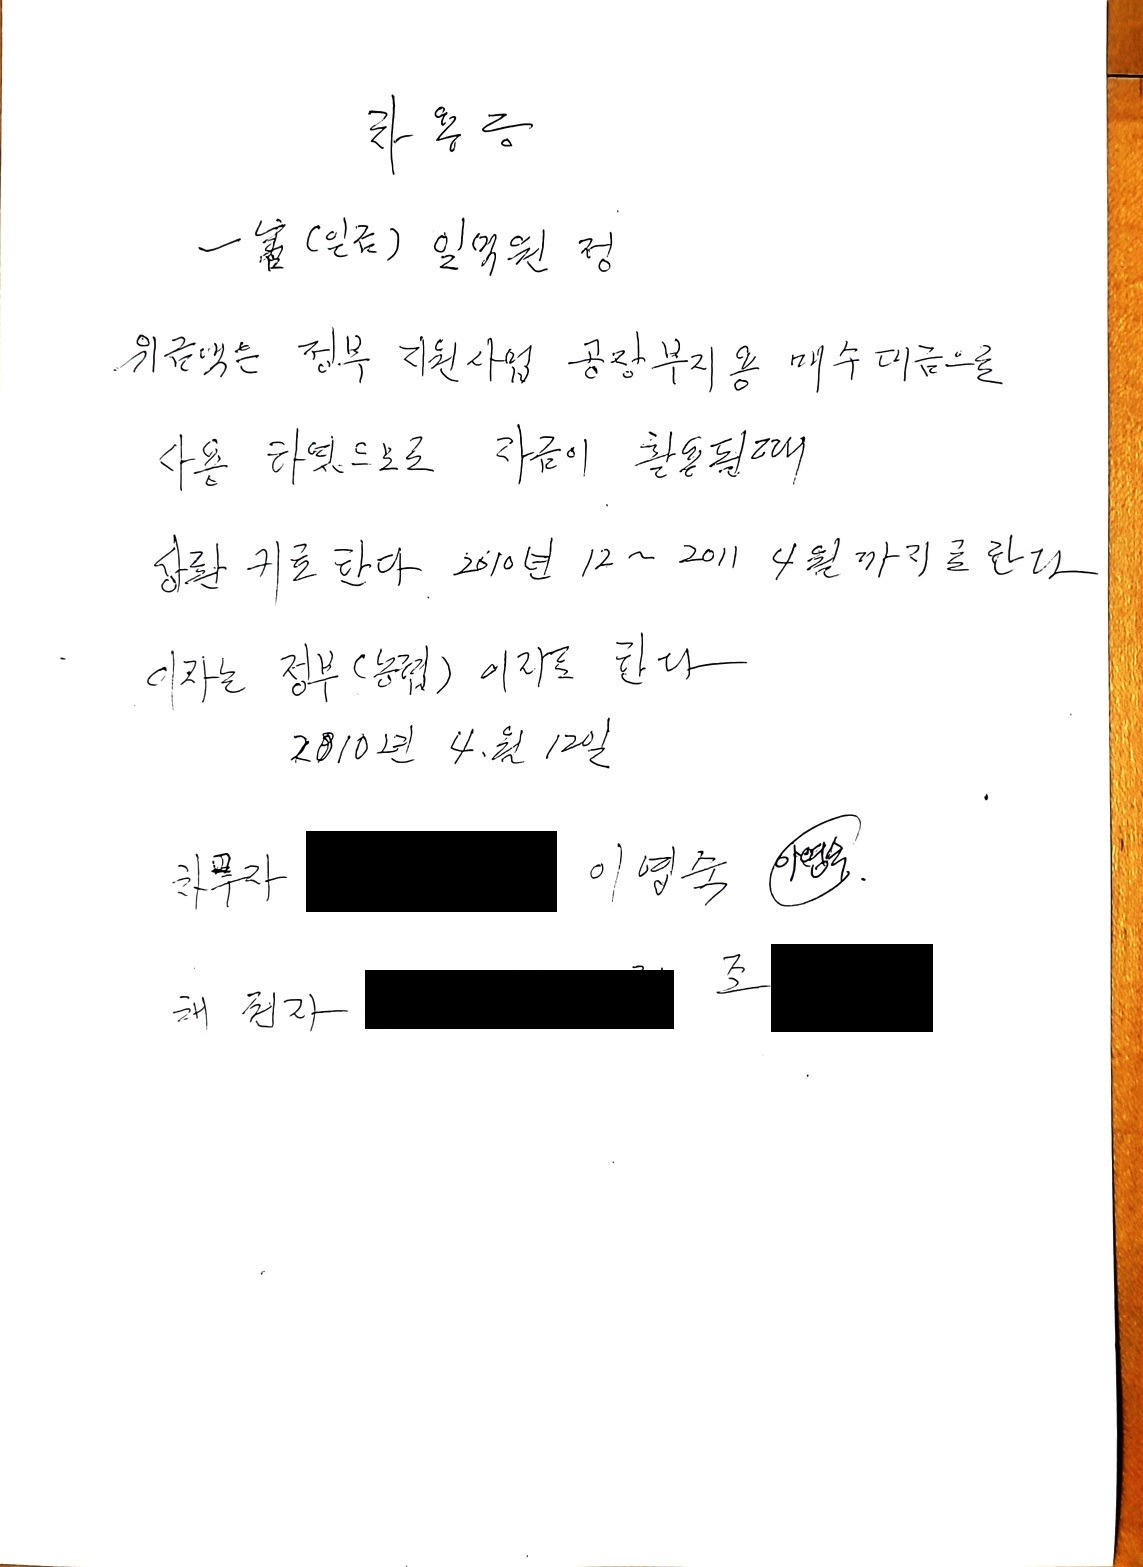 차용증
一金(일금) 일억원 정
위금액은 정부 지원사업 공장부지용 매수대금으로
사용 하였으므로 자금이 활용될때
상환 키로 한다 2010년 12~2011 4월까지로 한다
이자는 정부(농협) 이자로 한다
2010년 4.월 12일
차무자 이영숙 이영숙.
채권자 조